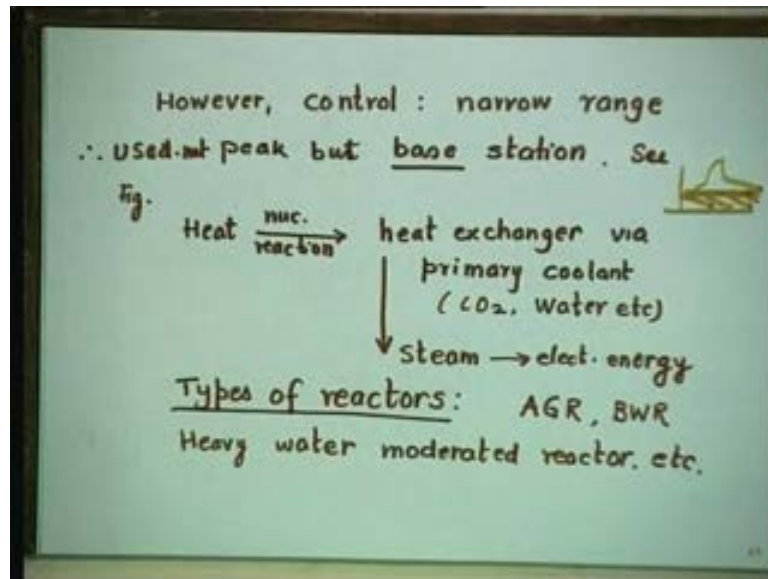 However, control : narrow range
∴ used not peak but base station. See
Fig.
Heat nuc. reaction → heat exchanger via
primary coolant
(CO₂, Water etc)
↓ Steam → elect. energy
Types of reactors : AGR, BWR
Heavy water moderated reactor. etc.